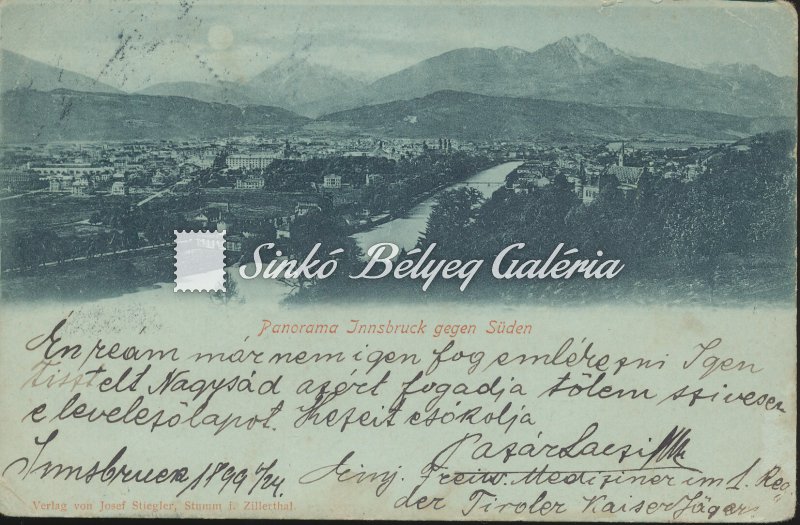 Sinkó Bélyeg Galéria
Panorama Innsbruck gegen Süden
Én reám már nem igen fog emlérezni Igen
tisztelt Nagysád azért fogadja tőlem szivesen
e levelezőlapot. Kezeit csókolja
Pazár Laczi
Innsbruck 1899 Einj. Freiw. Mediziner im 1. Reg.
der Tiroler Kaiser Jäger
Verlag von Josef Stiegler, Stumm i. Zillerthal.